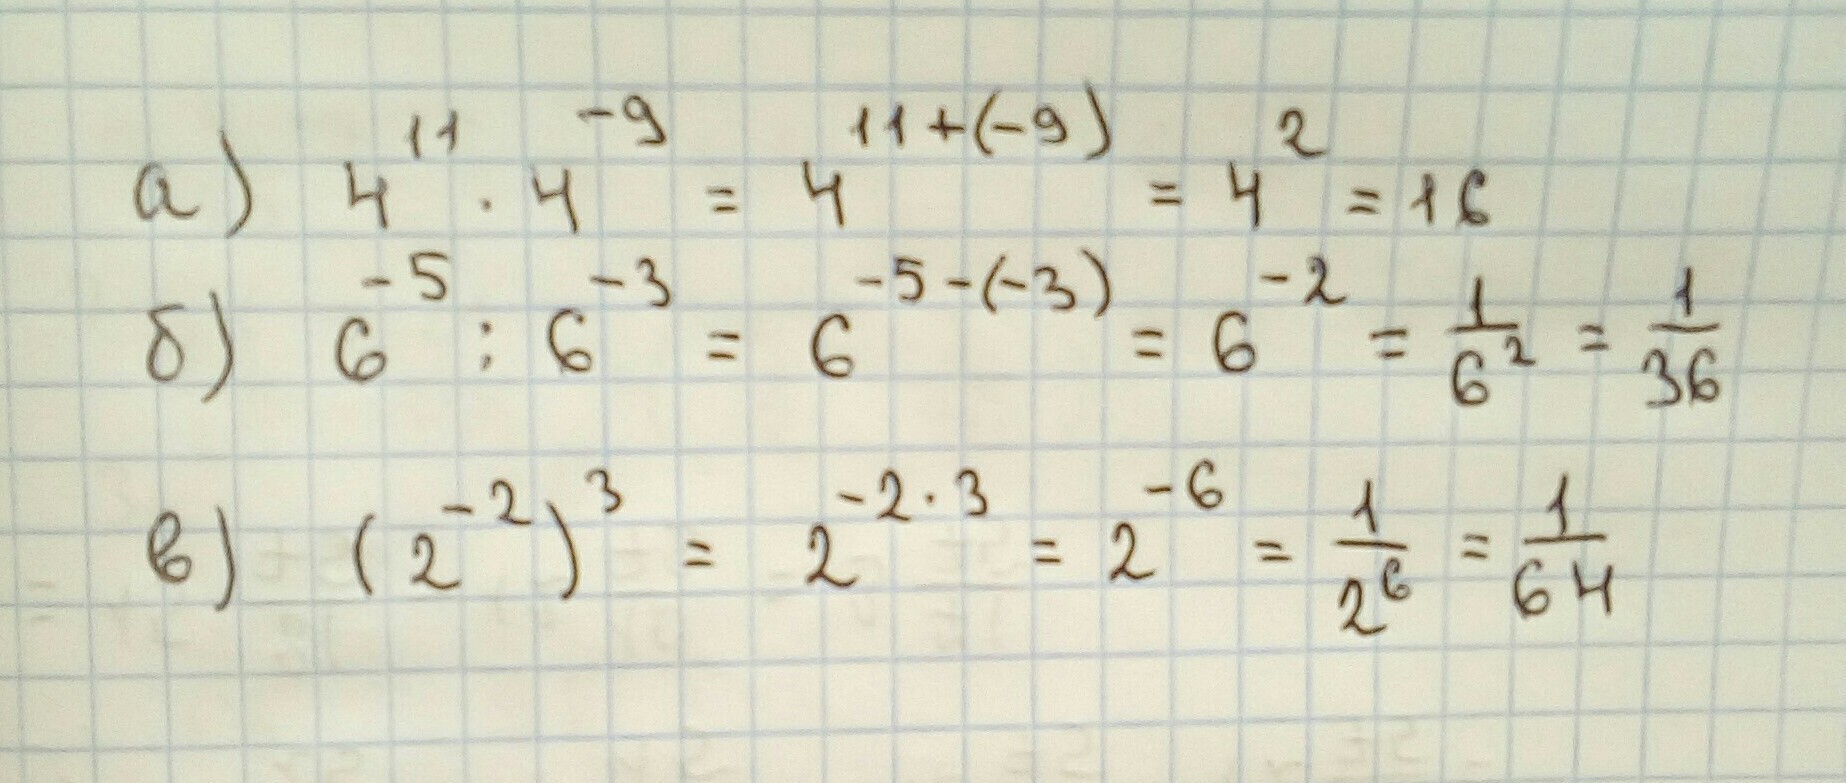 а) 4¹¹ · 4⁻⁹ = 4¹¹⁺⁽⁻⁹⁾ = 4² = 16
б) 6⁻⁵ : 6⁻³ = 6⁻⁵⁻⁽⁻³⁾ = 6⁻² = 1/6² = 1/36
в) (2⁻²)³ = 2⁻²·³ = 2⁻⁶ = 1/2⁶ = 1/64